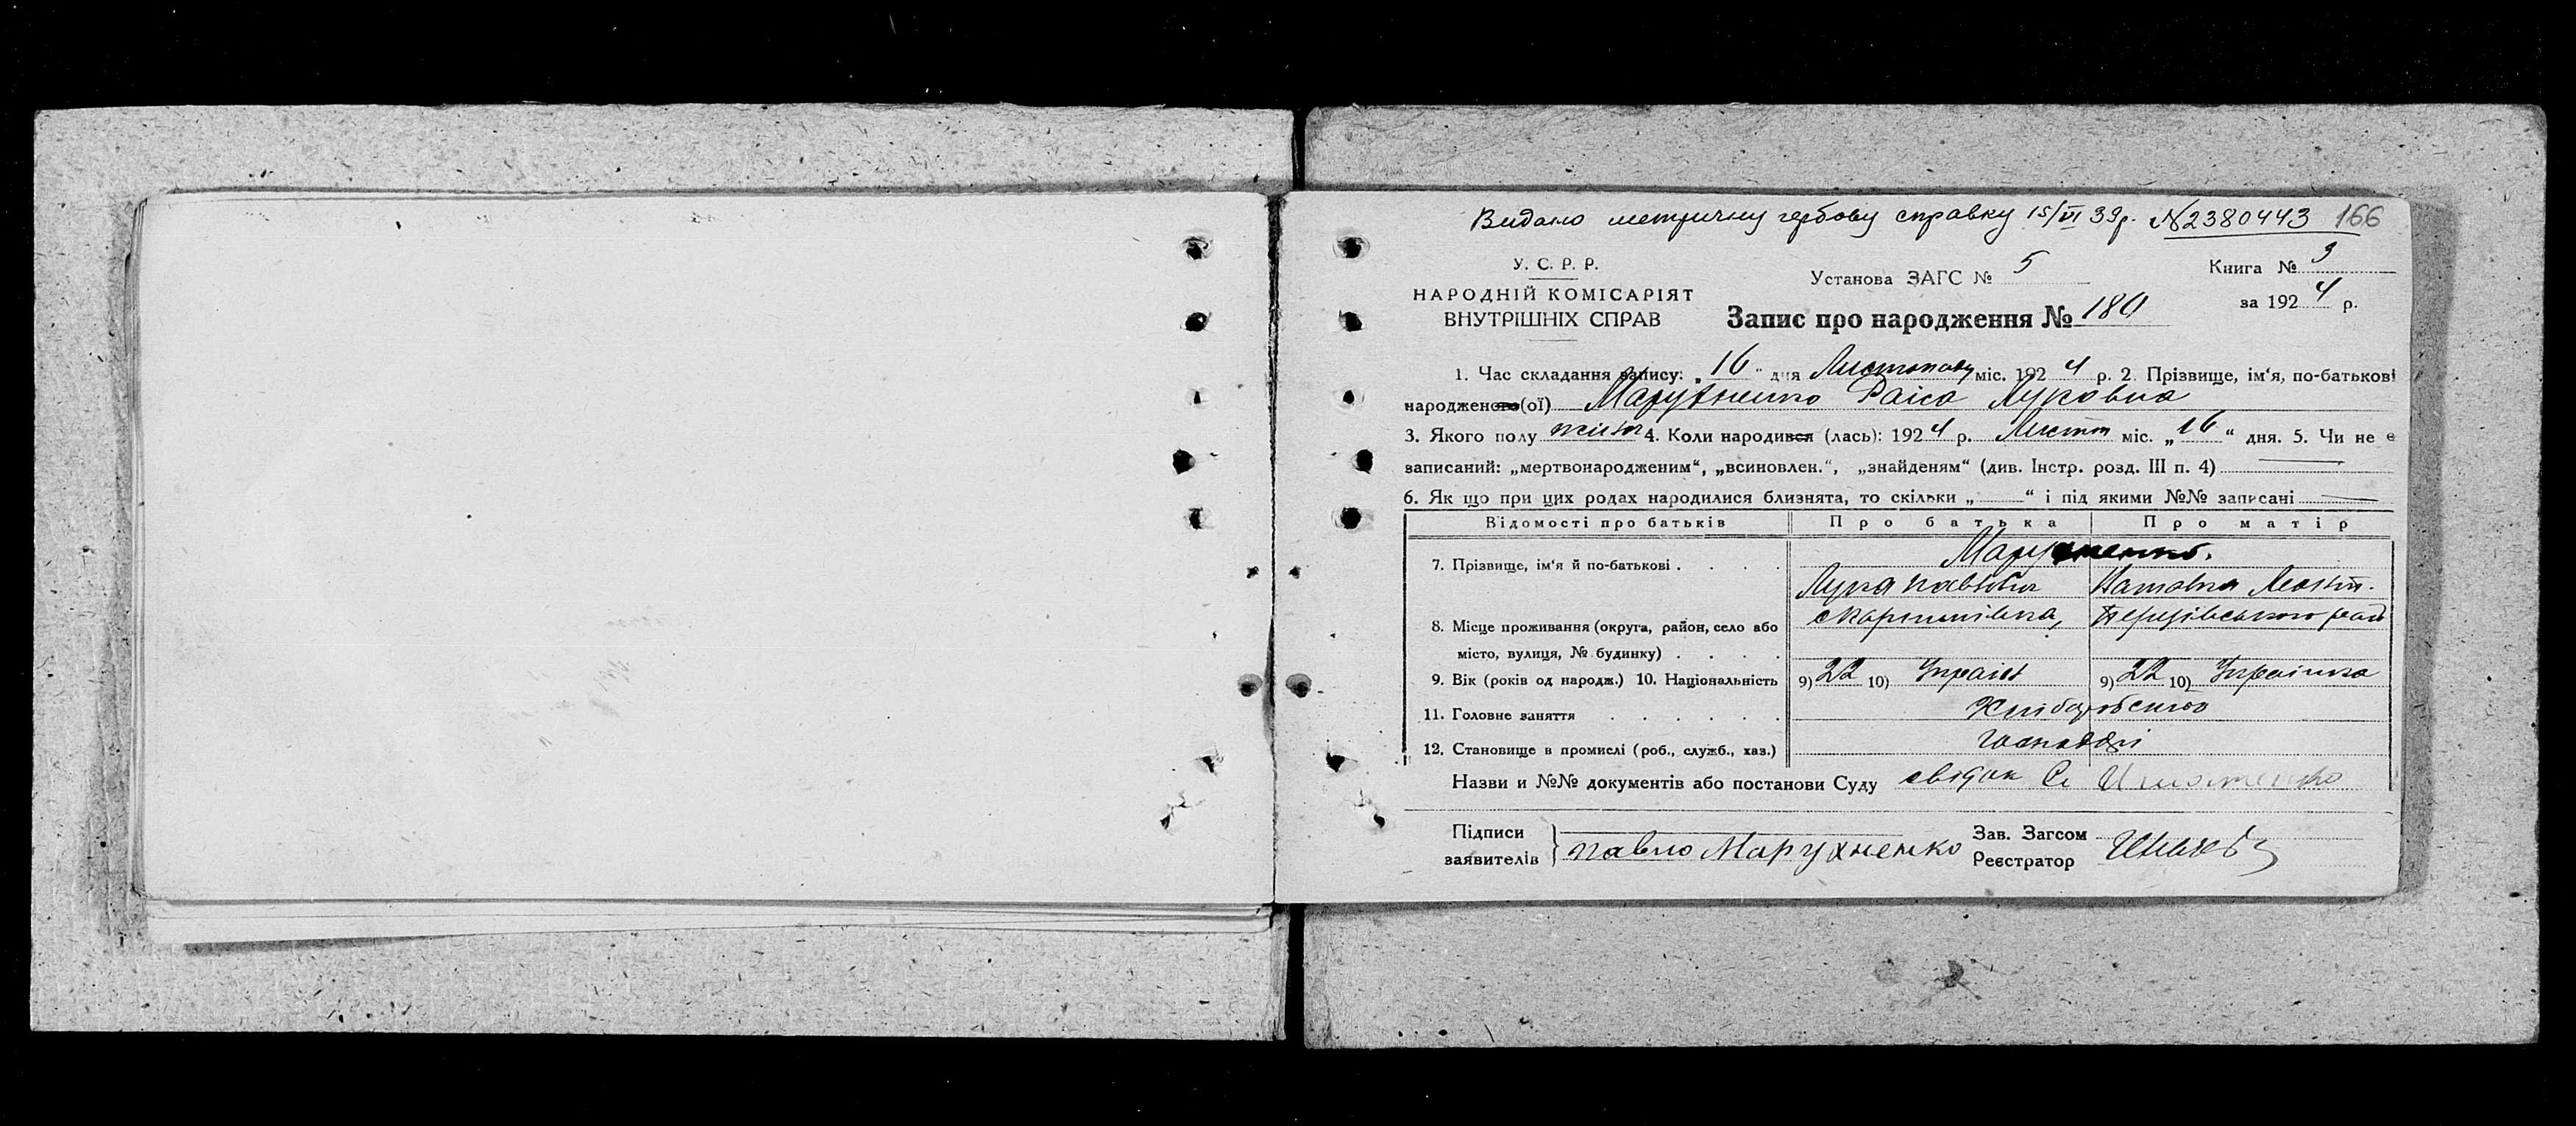 Видано метричну гербову справку 15/VI 39р. №2380443 166
У. С. Р. Р.
НАРОДНІЙ КОМІСАРІЯТ
ВНУТРІШНІХ СПРАВ
Установа ЗАГС № 5
Книга № 3
за 1924 р.
Запис про народження № 180
1. Час складання запису: „16" дня Листопаду міс. 1924 р. 2. Прізвище, ім'я, по-батькові
народженого(ої) Марухненко Раіса Луковна
3. Якого полу жіноч 4. Коли народився (лась): 1924 р. Листоп міс. „16" дня. 5. Чи не є
записаний: „мертвонародженим", „всиновлен.", „знайденям" (див. Інстр. розд. III п. 4)
6. Як що при цих родах народилися близнята, то скільки „ " і під якими №№ записані
Відомості про батьків Про батька Про матір
7. Прізвище, ім'я й по-батькові . . . . Марухненко.
Лука Павлович
8. Місце проживання (округа, район, село або
місто, вулиця, № будинку) . . . .
9. Вік (років од народж.) 10. Національність 9) 22 10) Украін 9) 22 10) Украінка
11. Головне заняття . . . . . . Хліборобських
12. Становище в промислі (роб., служб., хаз.) Господарі
Назви и №№ документів або постанови Суду свідок
Підписи
заявителів } Павло Марухненко
Зав. Загсом
Реєстратор